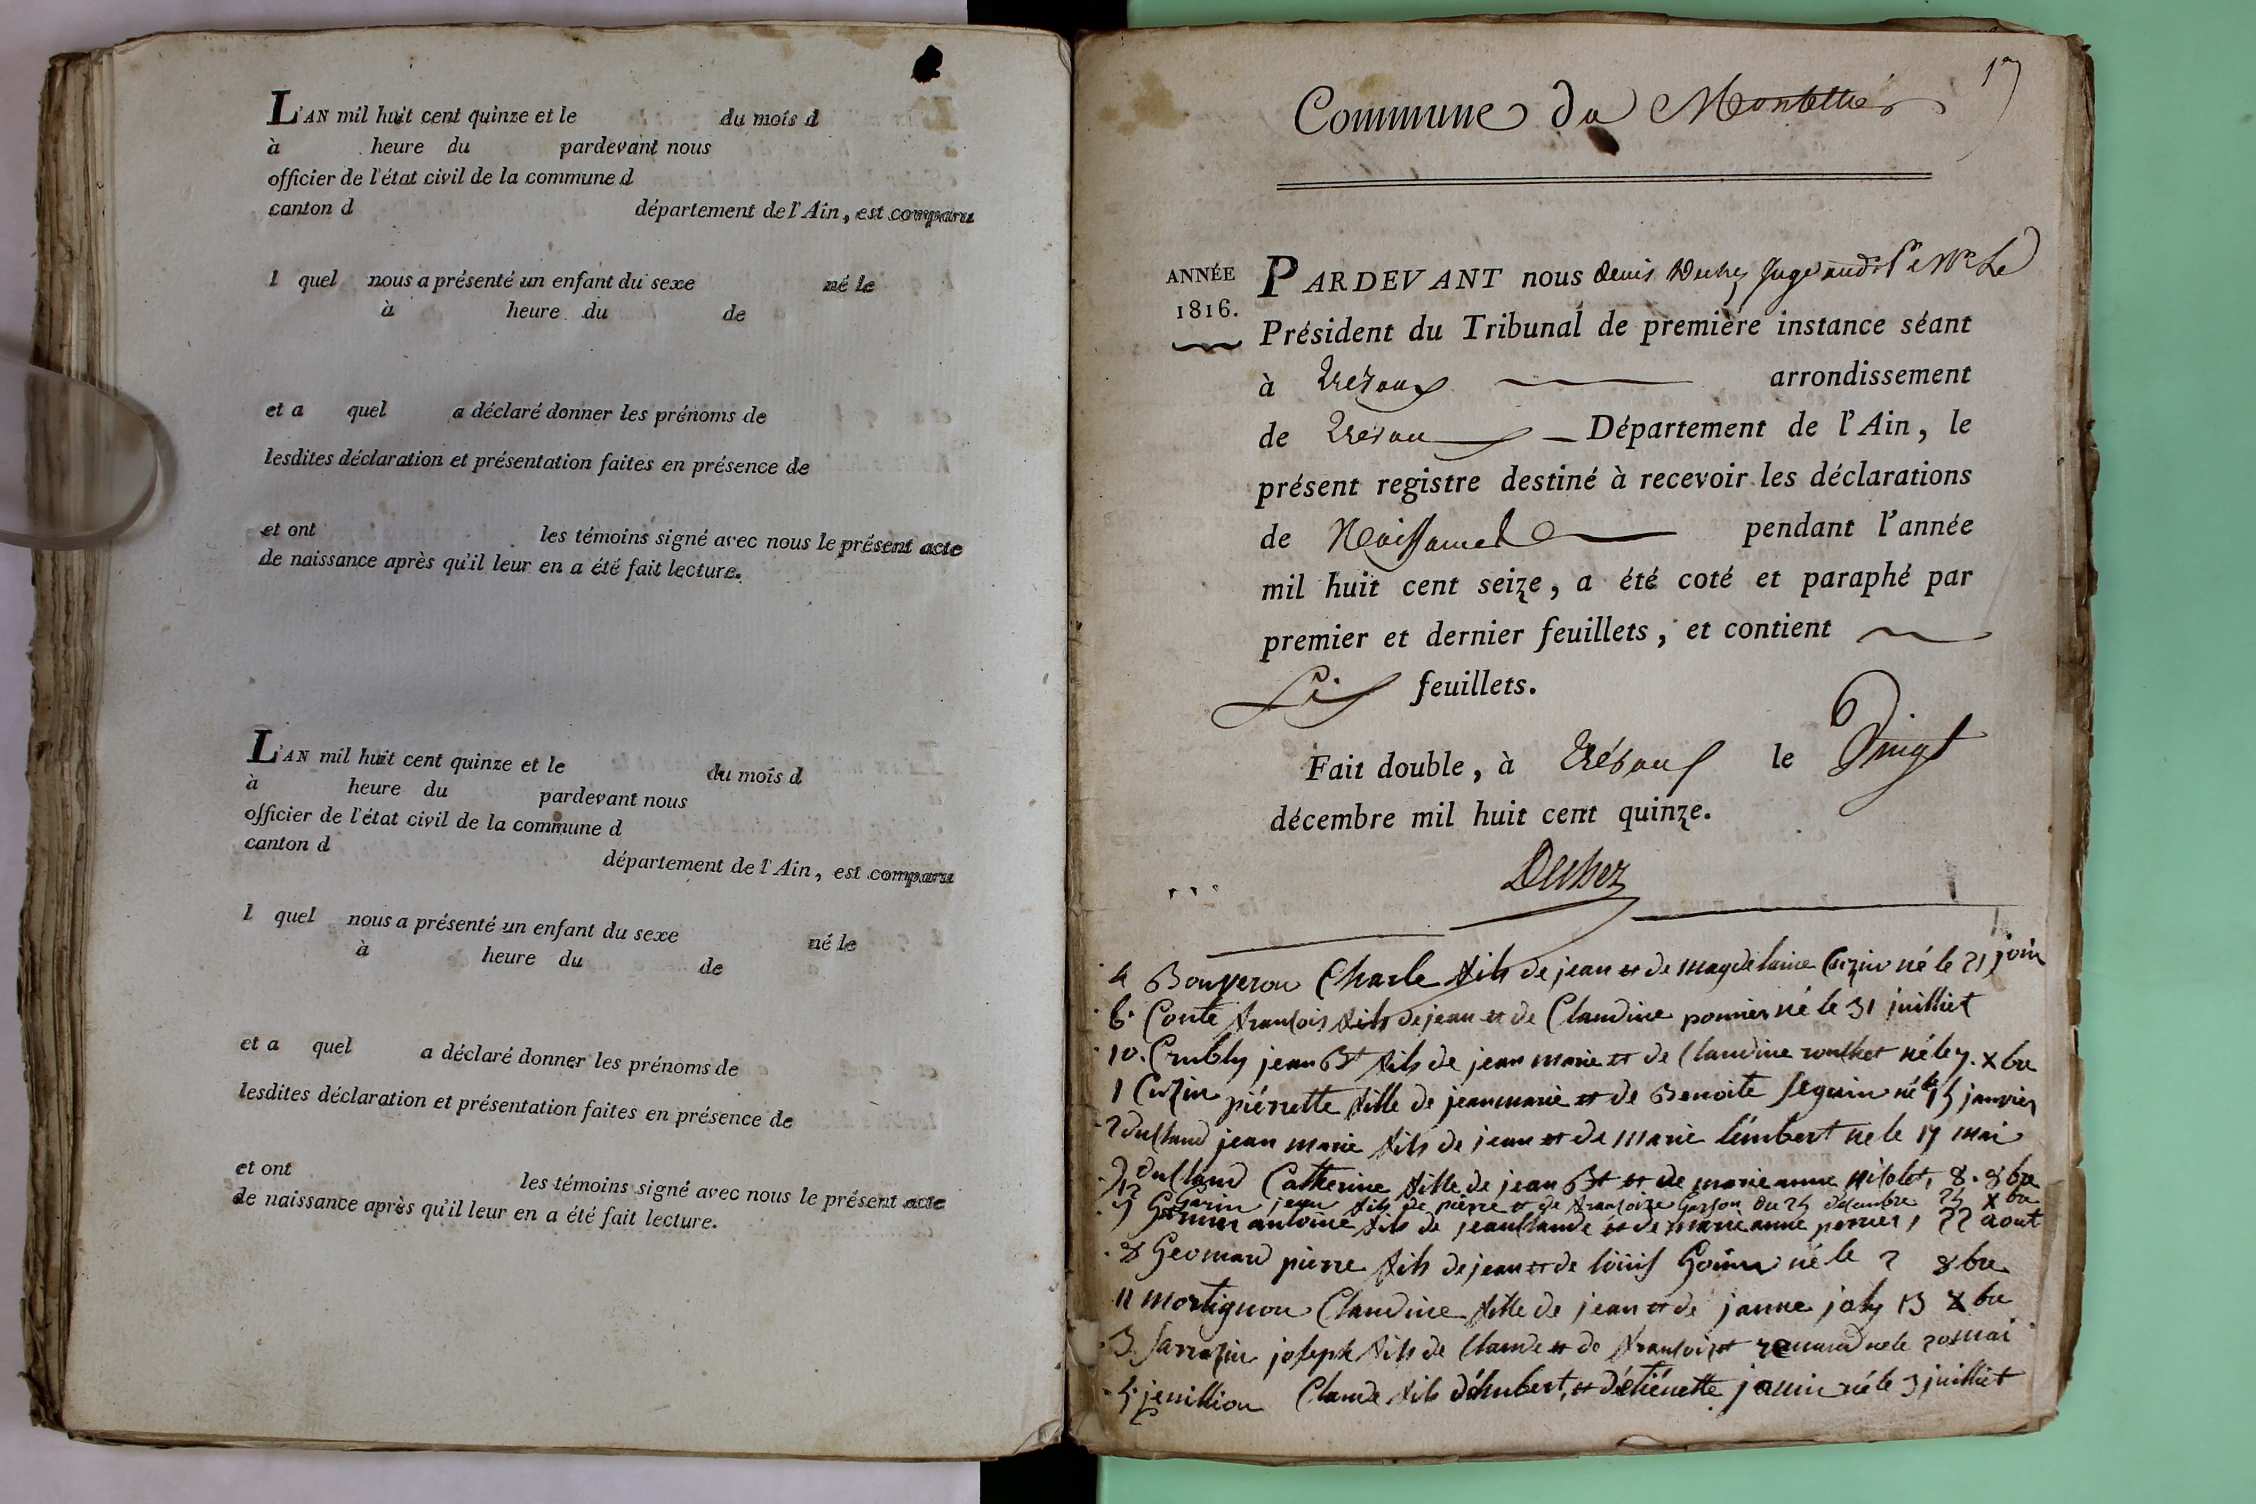 L'AN mil huit cent quinze et le du mois d
à heure du pardevant nous
officier de l'état civil de la commune d
canton d département de l'Ain, est comparu
l quel nous a présenté un enfant du sexe né le
à heure du de
et a quel a déclaré donner les prénoms de
lesdites déclaration et présentation faites en présence de
et ont les témoins signé avec nous le présent acte
de naissance après qu'il leur en a été fait lecture.
L'AN mil huit cent quinze et le du mois d
à heure du pardevant nous
officier de l'état civil de la commune d
canton d département de l'Ain, est comparu
l quel nous a présenté un enfant du sexe né le
à heure du de
et a quel a déclaré donner les prénoms de
lesdites déclaration et présentation faites en présence de
et ont les témoins signé avec nous le présent acte
de naissance après qu'il leur en a été fait lecture.
17
Commune du Montellier
ANNÉE
1816.
PARDEVANT nous denis Duchez Juge
Président du Tribunal de première instance séant
à Trévoux arrondissement
de Trévoux Département de l'Ain, le
présent registre destiné à recevoir les déclarations
de Naissance pendant l'année
mil huit cent seize, a été coté et paraphé par
premier et dernier feuillets, et contient
Six feuillets.
Fait double, à Trévoux le Vingt
décembre mil huit cent quinze.
Duchez
4 Bouveron Charle fils de jean et de magdelaine Cuzin né le 21 juin
6. Conte françois fils de jean et de Claudine ponnier né le 31 juilliet
10. Crubly jean Bt fils de jean marie et de Claudine né le 7. Xbre
1 Cuzin piérrette fille de jeanmarie et de Benoite Seguin né le 15 janvier
2 dulland jean marie fils de jean et de marie lémbert né le 17 mai
9 dulland Catherine fille de jean Bt et de marie anne 8. 8bre
12 Garin jean fils de pierre et de françoize du 25 décembre 25 Xbre
7 antoine fils de jeanclaude et de marie anne perrier, 22 aout
8 Geomard pierre fils de jean et de loüis né le 2 8bre
11 mortignon Claudine fille de jean et de janne joly 13 Xbre
3. Sarrazin joseph fils de Claude et de renaud né le 20 mai
5. jenillion Claude fils d'humbert, et d'étiénette jamin né le 3 juilliet